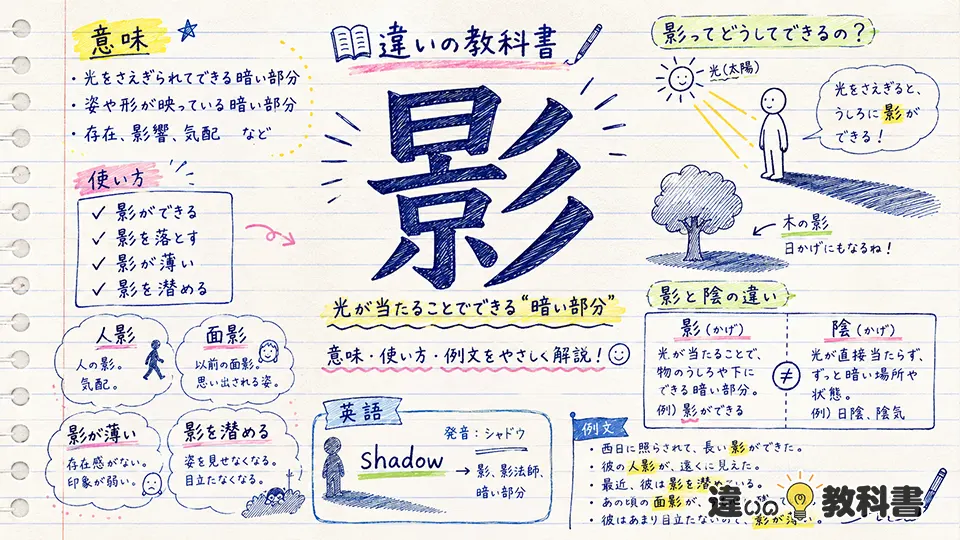 意味
・光をさえぎられてできる暗い部分
・姿や形が映っている暗い部分
・存在、影響、気配 など
使い方
✓ 影ができる
✓ 影を落とす
✓ 影が薄い
✓ 影を潜める
人影
人の影。
気配。
面影
以前の面影。
思い出される姿。
影が薄い
存在感がない。
印象が弱い。
影を潜める
姿を見せなくなる。
目立たなくなる。
違いの教科書
影
光が当たることでできる“暗い部分”
意味・使い方・例文をやさしく解説!
英語
発音：シャドウ
shadow → 影、影法師、
暗い部分
影ってどうしてできるの?
光(太陽)
光をさえぎると、
うしろに影が
できる!
木の影
日かげにもなるね!
影と陰の違い
影(かげ)
光が当たることで、
物のうしろや下に
できる暗い部分。
例)影ができる
≠
陰(かげ)
光が直接当たらず、
ずっと暗い場所や
状態。
例)日陰、陰気
例文
・西日に照らされて、長い影ができた。
・彼の人影が、遠くに見えた。
・最近、彼は影を潜めている。
・あの頃の面影が、
・彼はあまり目立たないので、影が薄い。
違いの教科書